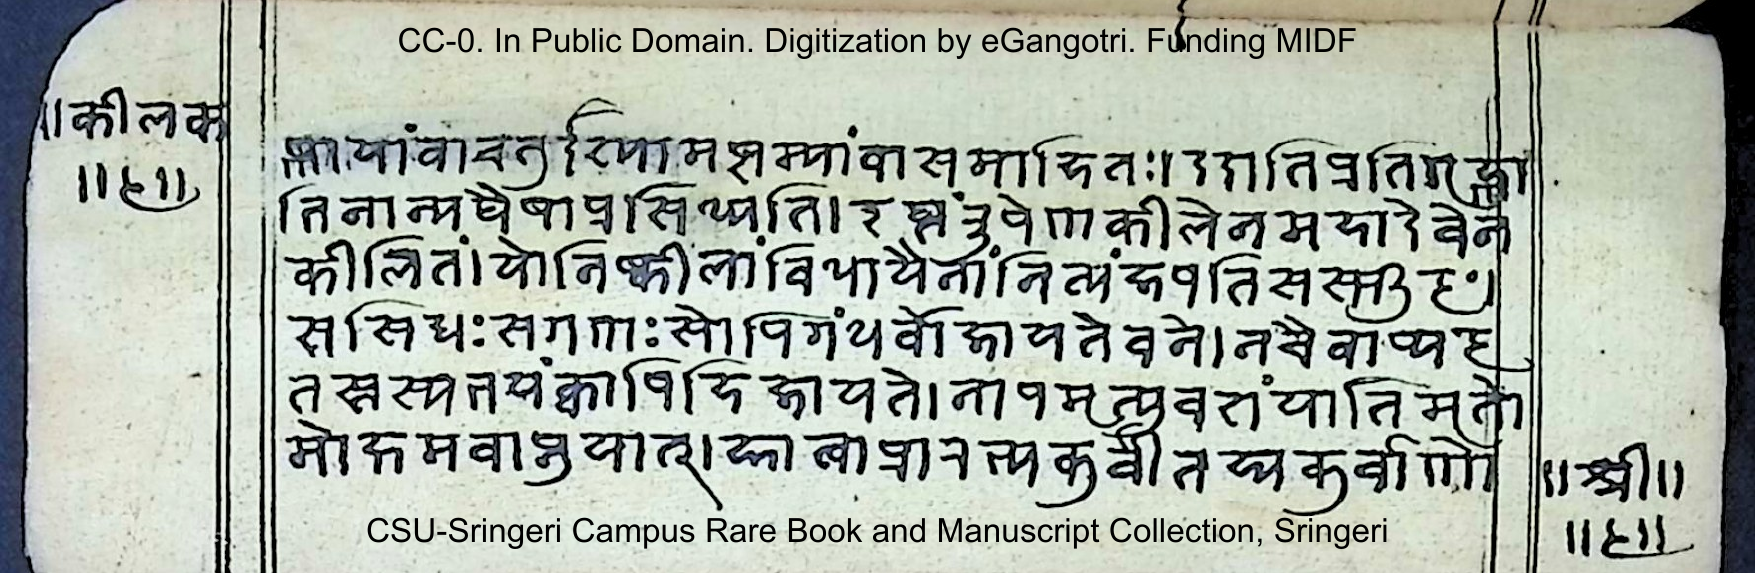 CC-0. In Public Domain. Digitization by eGangotri. Funding MIDF
॥कीलक
॥१॥
ष्णायांवाचतुर्दश्यामष्टम्यांवासमाहितः॥ददातिप्रतिगृह्णा
तिनान्यथैषाप्रसिध्यति।इत्थंरुपेणकीलेनमहादेवेन
कीलितं।योनिष्कीलांविधायैनांनित्यंजपतिसस्फुटः।
ससिधःसगणःसोपिगंधर्वोजायतेवने।नचैवाप्यट
तस्तस्यभयंक्वापिहिजायते।नापमृत्युवशंयातिमृतो
मोक्षमवाप्नुयात्।ज्ञात्वाप्रारभ्यकुर्वीतह्यकुर्वाणो
॥श्री॥
॥१॥
CSU-Sringeri Campus Rare Book and Manuscript Collection, Sringeri